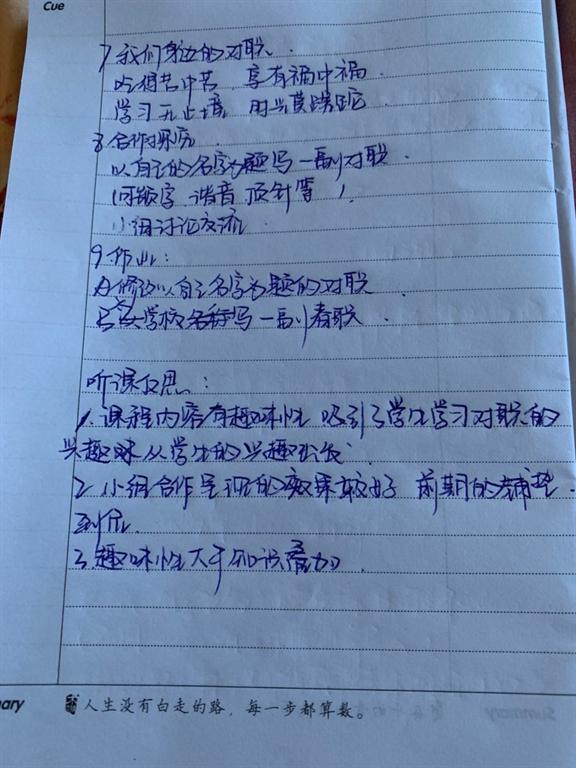 Cue
7 我们身边的对联.
吃得苦中苦 享有福中福
学习无止境
8 合作探究
以自己的名字为题写一副对联.
(同数字、谐音 顶针等)
小组讨论交流
9 作业:
修改以自己名字为题的对联
学校名称写一副春联.
听课反思:
1. 课程内容有趣味性 吸引了学生学习对联的
兴趣 从学生的兴趣出发
2. 小组合作呈现的效果较好 前期的铺垫
到位
3. 趣味性大于知识
ary
人生没有白走的路，每一步都算数。
Summary